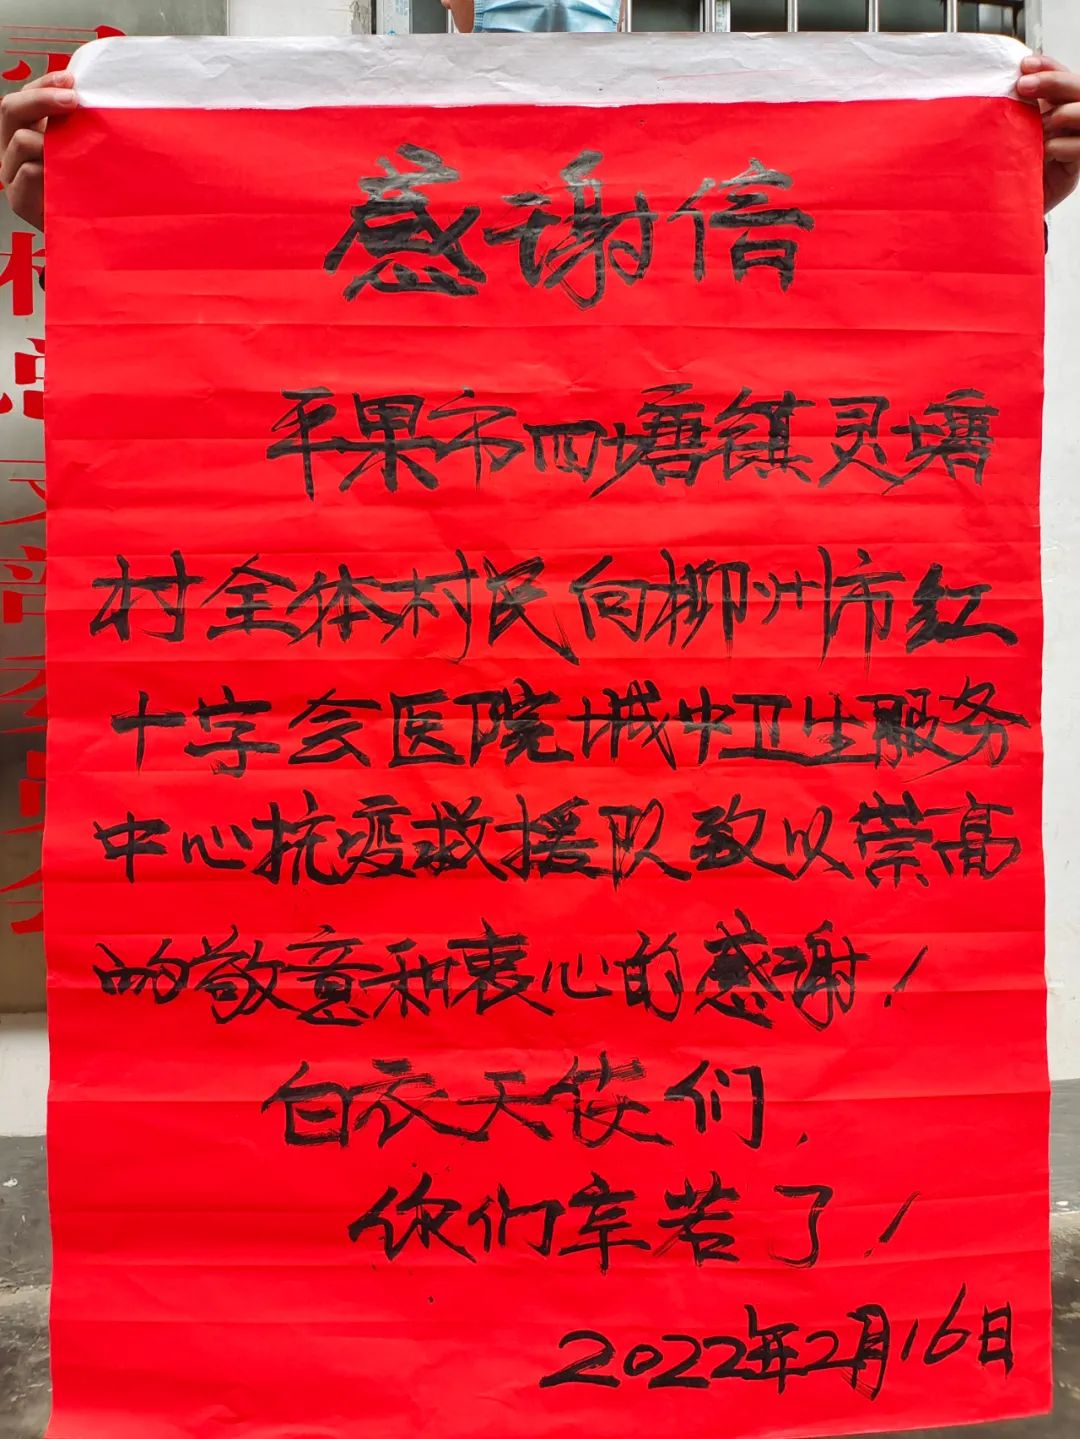 感谢信
平果市四塘镇灵塘
村全体村民向柳州市红
十字会医院城中卫生服务
中心抗疫救援队致以崇高
的敬意和衷心的感谢！
白衣天使们，
你们辛苦了！
2022年2月16日